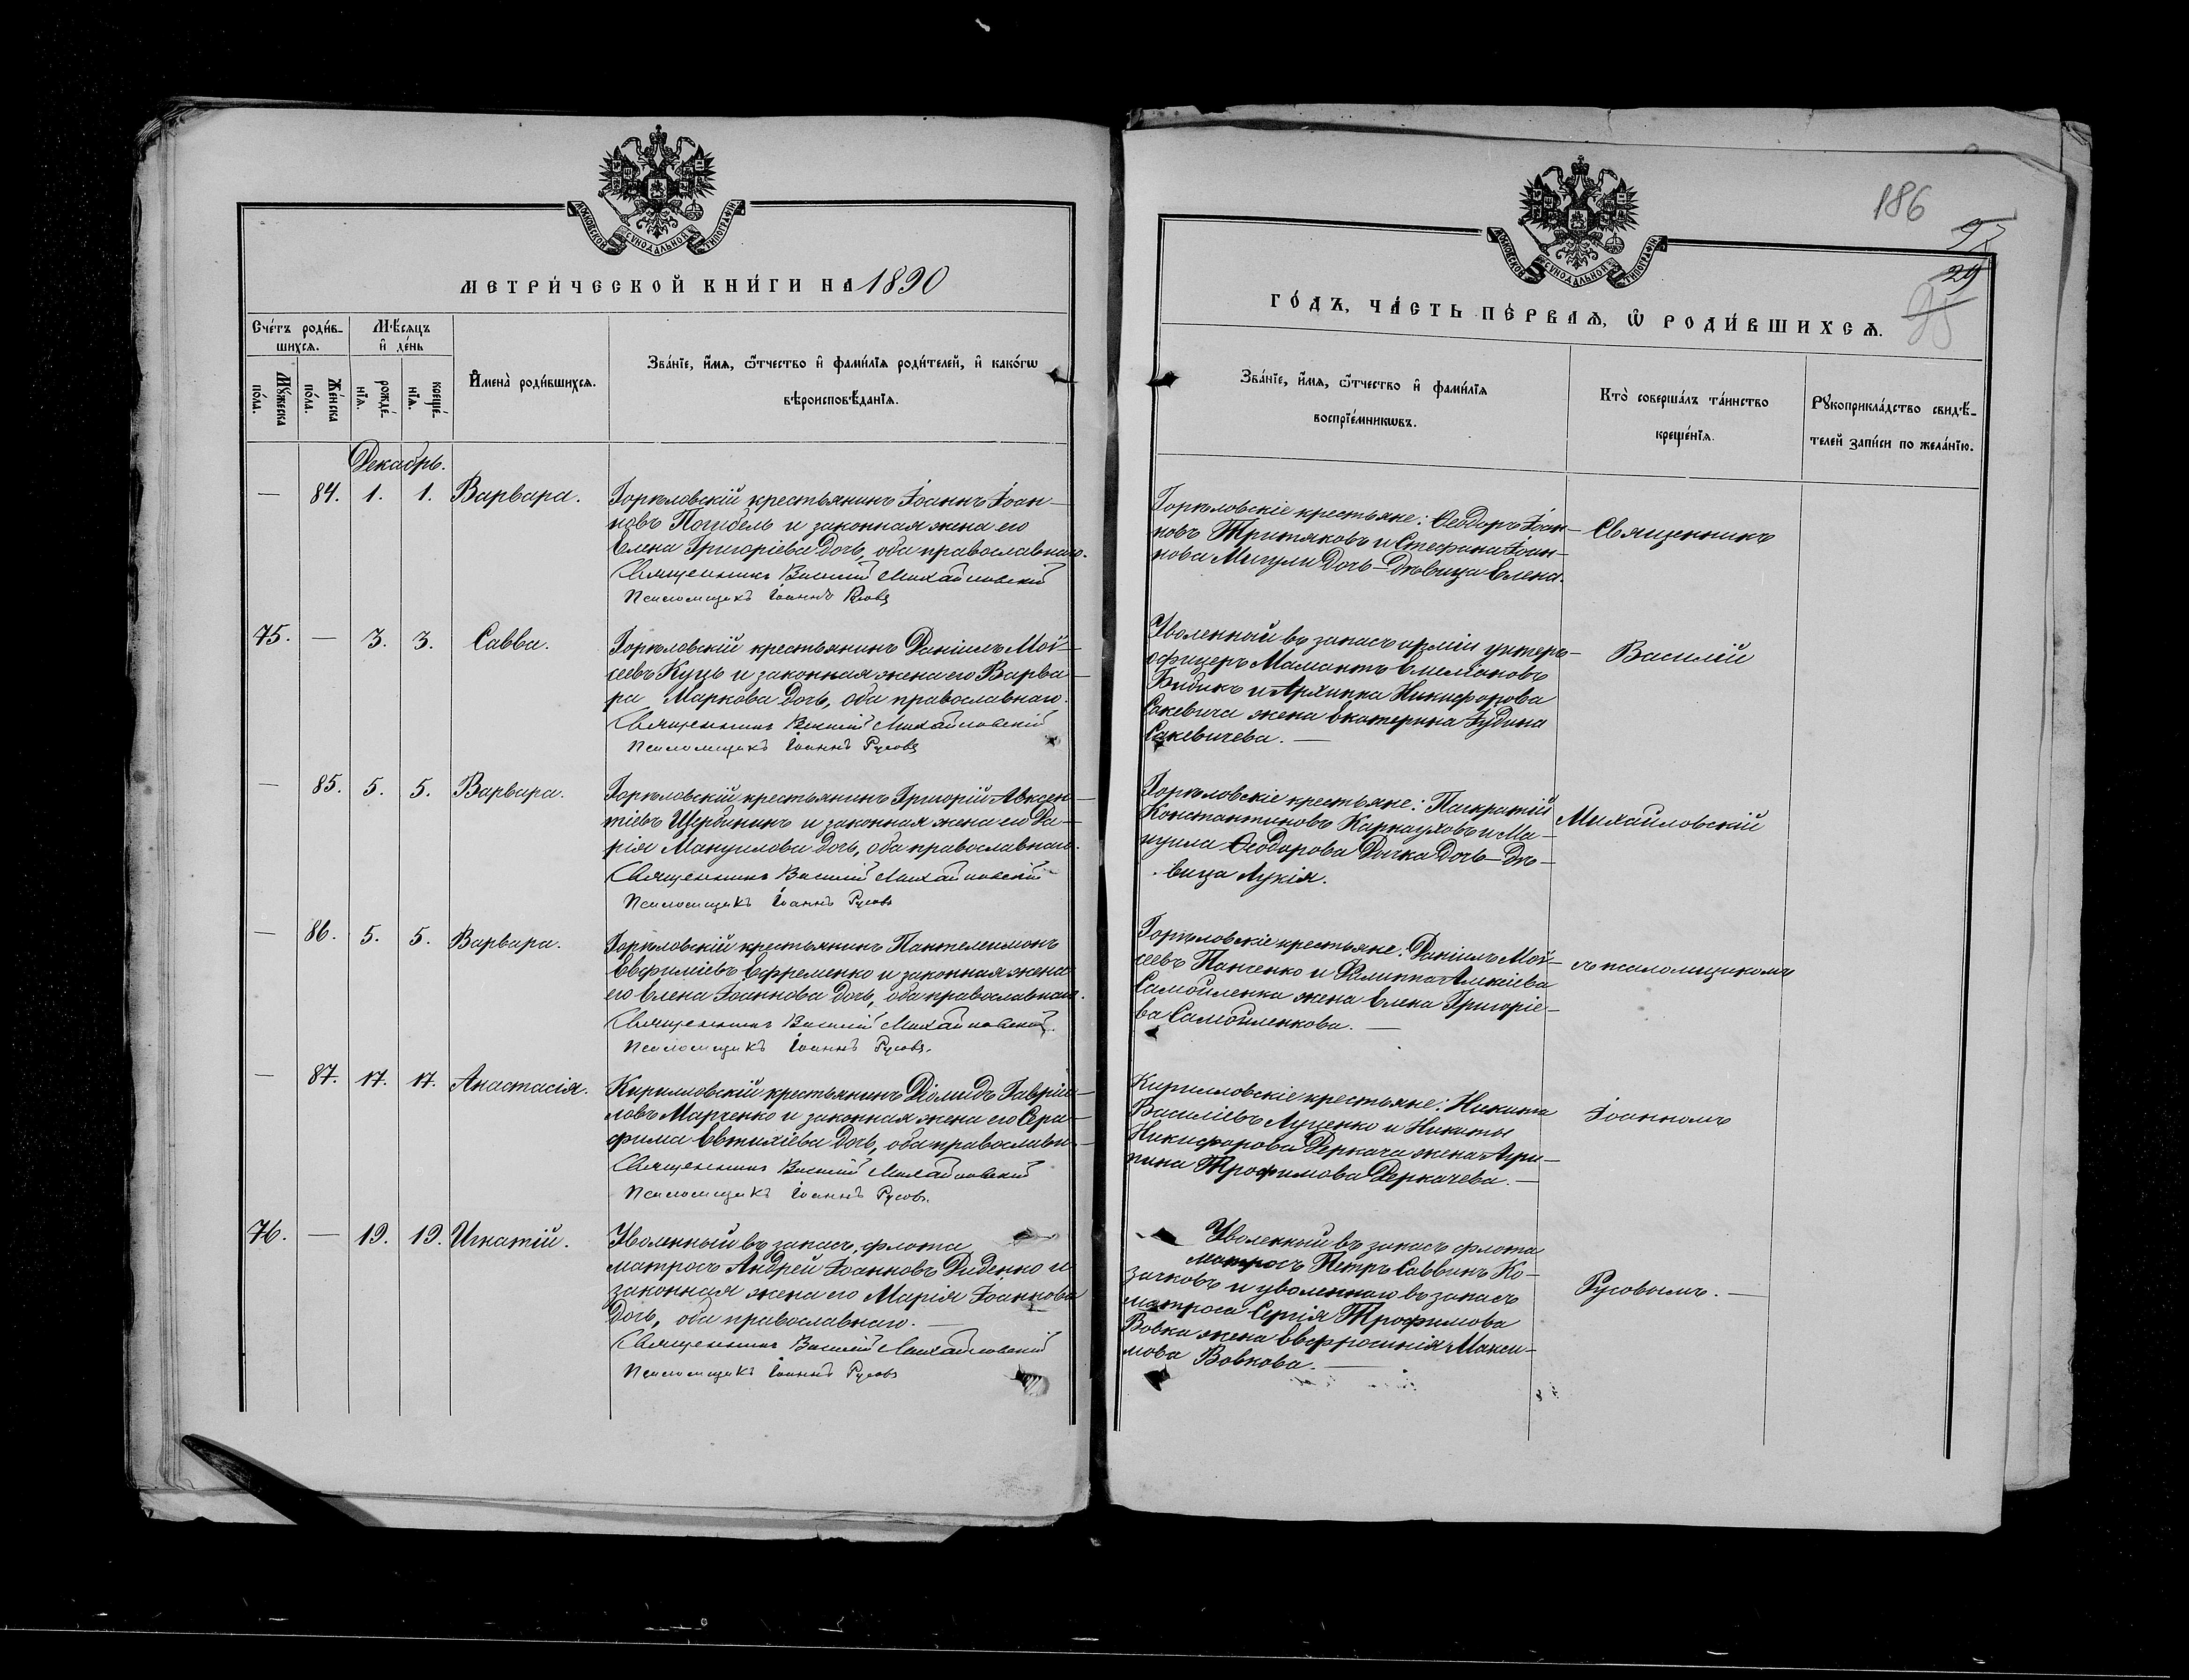 МОСКОВСКОЙ СУНОДАЛЬНОЙ ТИПОГРАФІИ
МЕТРИ́ЧЕСКОЙ КНИ́ГИ НА 1890
Сче́тъ роди́в-
шихсѧ.
Мѣ́сѧцъ
и҆ де́нь
Мꙋ́жеска
по́ла.
Же́нска
по́ла.
рожде́-
нїѧ.
креще́-
нїѧ.
И҆мена̀ роди́вшихсѧ.
Зва́нїе, и҆́мѧ, ѻ҆́тчество и҆ фами́лїѧ роди́телей, и҆ како́гѡ
вѣроисповѣ́данїѧ.
Декабрь.
— 84. 1. 1. Варвара.
Горѣловскій крестьянинъ Іоаннъ Іоан-
новъ Погибель и законная жена его
Елена Григоріева дочь, оба православнаго.
Священникъ Василій Михайловскій
Псаломщикъ Іоаннъ Русовъ
75. — 3. 3. Савва.
Горѣловскій крестьянинъ Даніилъ Мой-
сеевъ Куць и законная жена его Варва-
ра Маркова дочь, оба православнаго.
Священникъ Василій Михайловскій
Псаломщикъ Іоаннъ Русовъ
— 85. 5. 5. Варвара.
Горѣловскій крестьянинъ Григорій Авксен-
тіевъ Щербининъ и законная жена его Да-
рія Мануилова дочь, оба православнаго.
Священникъ Василій Михайловскій
Псаломщикъ Іоаннъ Русовъ
— 86. 5. 5. Варвара.
Горѣловскій крестьянинъ Пантелеимонъ
Евфиміевъ Ефременко и законная жена
его Елена Іоаннова дочь, оба православнаго.
Священникъ Василій Михайловскій.
Псаломщикъ Іоаннъ Русовъ.
— 87. 17. 17. Анастасія.
Кирилловскій крестьянинъ Діомидъ Гаврии-
ловъ Марченко и законная жена его Сера-
фима Евтихіева дочь, оба православн-
Священникъ Василій Михайловскій
Псаломщикъ Іоаннъ Русовъ.
76. — 19. 19. Игнатій.
Уволенный въ запасъ флота
матросъ Андрей Іоанновъ Диденко и
законная жена его Марія Іоаннова
дочь, оба православнаго. —
Священникъ Василій Михайловскій
Псаломщикъ Іоаннъ Русовъ
186
29
МОСКОВСКОЙ СУНОДАЛЬНОЙ ТИПОГРАФІИ
ГО́ДЪ, ЧА́СТЬ ПЕ́РВАѦ, Ѡ҆ РОДИ́ВШИХСѦ.
Зва́нїе, и҆́мѧ, ѻ҆́тчество и҆ фами́лїѧ
воспрїе́мникѡвъ.
Кто̀ соверша́лъ та́инство
креще́нїѧ.
Рꙋкоприкла́дство свидѣ́-
телей за́писи по жела́нїю.
Горѣловскіе крестьяне: Ѳеодоръ Іоан-
новъ Тритяковъ и Стефана Іоан-
нова Мигули дочь – дѣвица Елена.
Уволенный въ запасъ арміи унтеръ-
офицеръ Мамантъ Емеліановъ
Бибикъ и Архиппа Никифорова
Сакевича жена Екатерина Іудина
Сакевичева. —
Горѣловскіе крестьяне: Панкратій
Константиновъ Карнауховъ и Ма-
нуила Ѳеодорова дочь – дѣ-
вица Лукія.
Горѣловскіе крестьяне: Даніилъ Мой-
сеевъ Панченко и Филиппа Алексіева
Самойленка жена Елена Григоріе-
ва Самойленкова. —
Кирилловскіе крестьяне: Никита
Василіевъ Луценко и Никиты
Никифорова Деркача жена Агри-
пина Трофимова Деркачева. —
Уволенный въ запасъ флота
матросъ Петръ Саввинъ Ко-
зачковъ и уволеннаго въ запасъ
матроса Сергія Трофимова
Вовка жена Евфросинія Макси-
мова Вовкова. —
Священникъ
Василій
Михайловскій
съ псаломщикомъ
Іоанномъ
Русовымъ. —